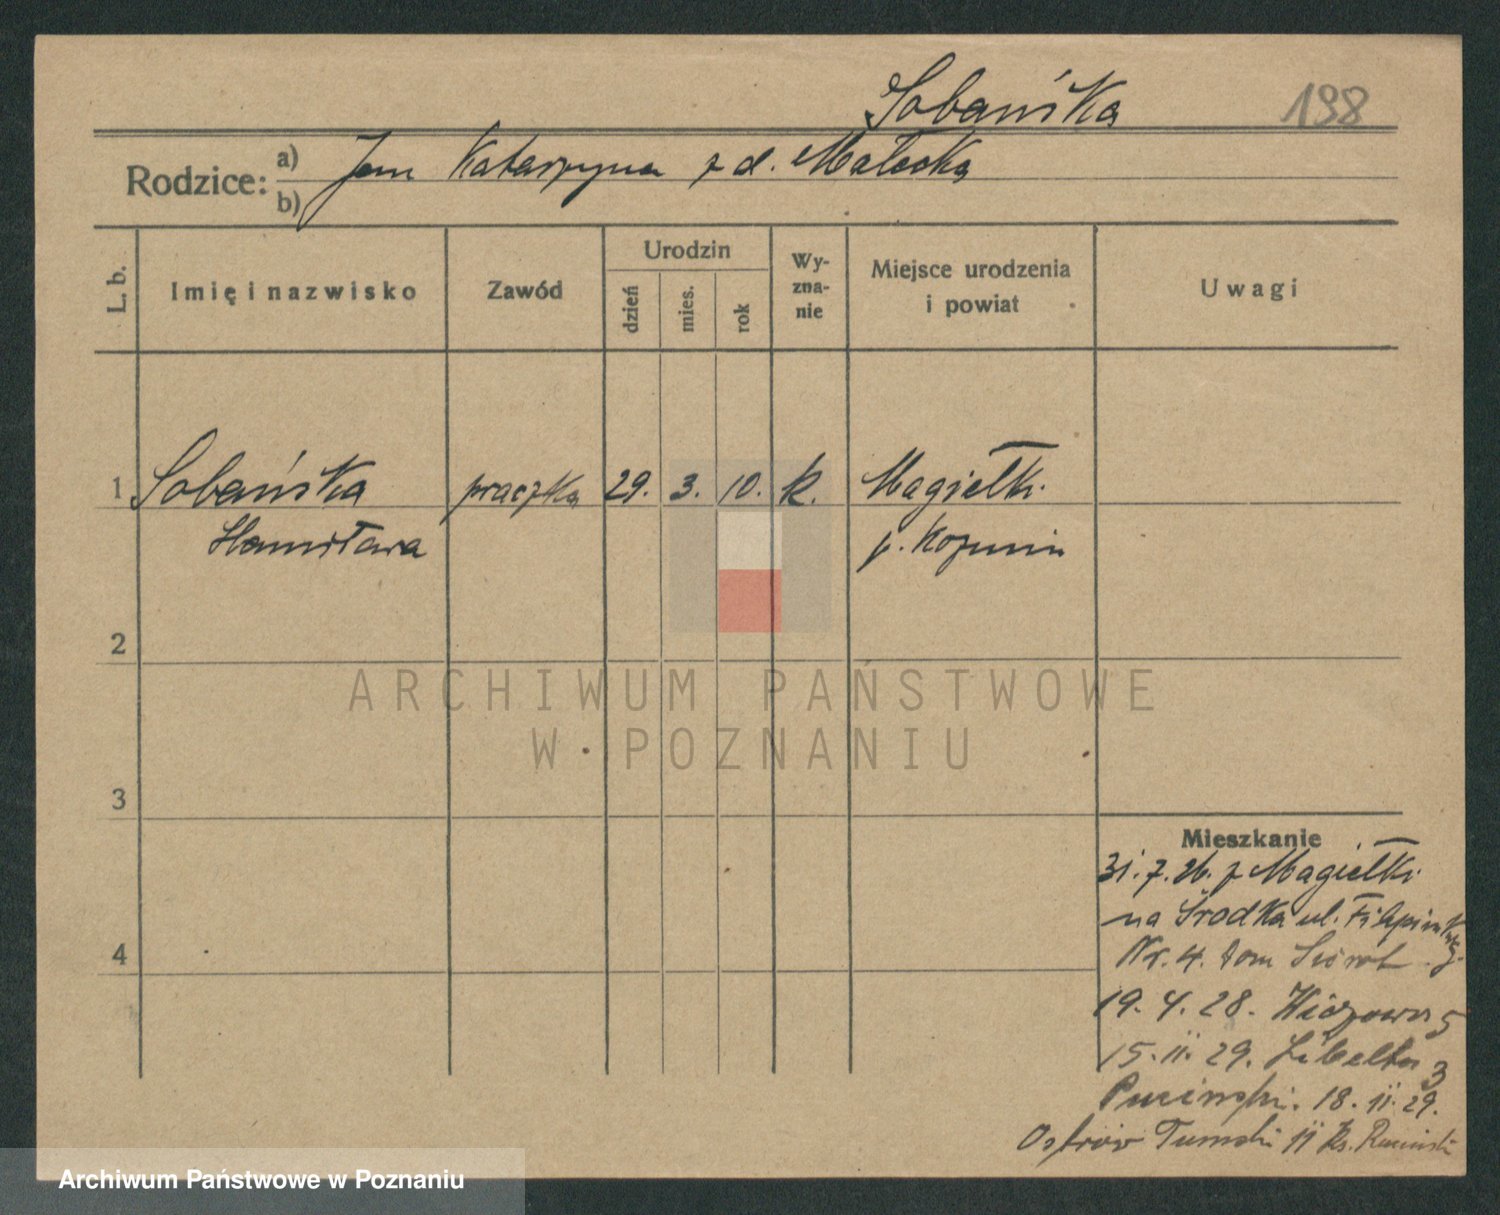 Sobańska
198
Rodzice: a) Jan Katarzyna z d. Małecka
b)
L. b.
Imię i nazwisko
Zawód
Urodzin
dzień
mies.
rok
Wy-
zna-
nie
Miejsce urodzenia
i powiat
Uwagi
1 Sobańska praczka 29. 3. 10. k. Magiełki
Stanisława p. Koźmin
2
3
4
ARCHIWUM PAŃSTWOWE
W POZNANIU
Mieszkanie
31.7.26. z Magiełki
na Środka ul. Filipińska
Nr. 4. dom Sierot
19. 4. 28. 5
15. 11. 29. Libelta 3
18. 11. 29.
Ostrów Tumski 11 Ks.
Archiwum Państwowe w Poznaniu